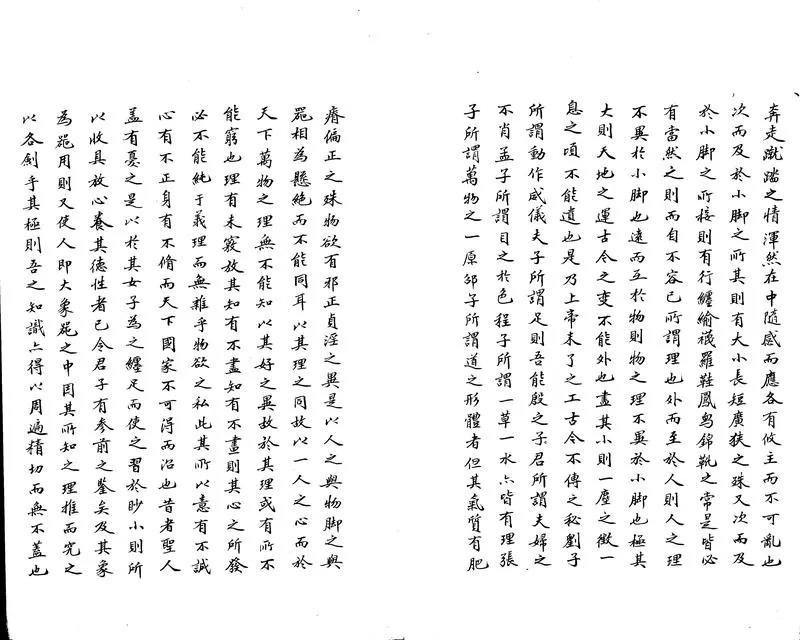 奔走蹴踏之情渾然在中隨感而應各有攸主而不可亂也
次而及於小脚之所具則有大小長短廣狹之殊又次而及
於小脚之所接則有行纏綸襪羅鞋鳳舄錦靴之常是皆必
有當然之則而自不容已所謂理也外而至於人則人之理
不異於小脚也遠而至於物則物之理不異於小脚也極其
大則天地之運古今之變不能外也盡其小則一塵之微一
息之頃不能遺也是乃上帝未了之工古今不傳之秘劉子
所謂動作威儀夫子所謂足則吾能殿之子君所謂夫婦之
不肖孟子所謂目之於色程子所謂一草一水亦皆有理張
子所謂萬物之一原邵子所謂道之形體者但其氣質有肥
瘠偏正之殊物欲有邪正貞淫之異是以人之與物脚之與
器相為懸絕而不能同耳以其理之同故以一人之心而於
天下萬物之理無不能知以其好之異故於其理或有所不
能窮也理有未窮故其知有不盡知有不盡則其心之所發
必不能純于義理而無雜乎物欲之私此其所以意有不誠
心有不正身有不脩而天下國家不可得而治也昔者聖人
盖有憂之是以於其女子為之纏足而使之習於眇小則所
以收其放心養其德性者已令君子有參前之鑒矣及其象
為器用則又使人即大象器之中因其所知之理推而究之
以各創乎其極則吾之知識亦得以周遍精切而無不蓋也